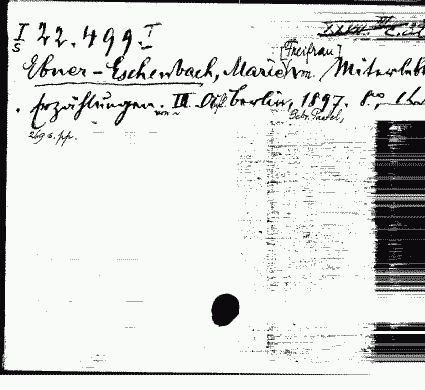 I 22.499.I
s
[Freifrau]
Ebner-Eschenbach, Marie von. Miterlebt
. Erzählungen. III. Aufl. Berlin, 1897. 8°,
Gebr. Paetel,